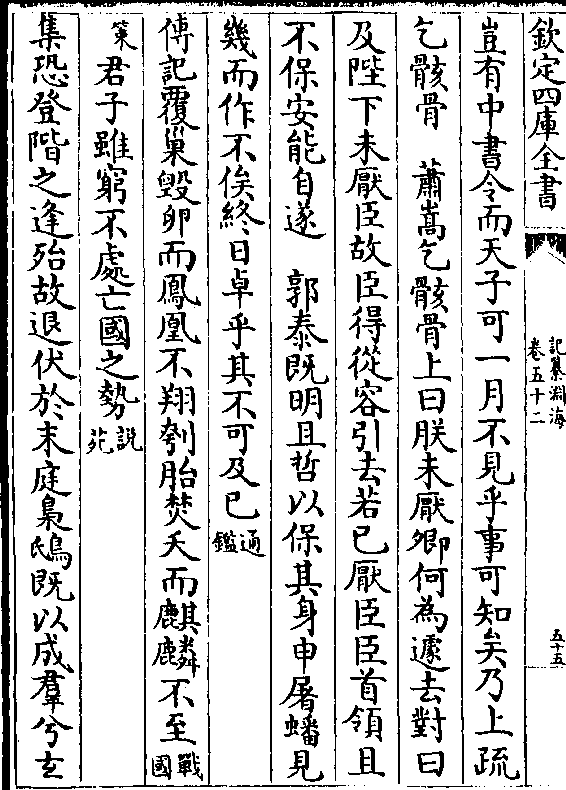 欽定四庫全書
記纂淵海
卷五十二
五十五
豈有中書令而天子可一月不見乎事可知矣乃上疏
乞骸骨　蕭嵩乞骸骨上曰朕未厭卿何為遽去對曰
及陛下未厭臣故臣得從容引去若已厭臣臣首領且
不保安能自遂　郭泰既明且哲以保其身申屠蟠見
幾而作不俟終日卓乎其不可及已通鑑
傳記覆巢毀卵而鳳凰不翔刳胎焚夭而麒麟不至戰國
策君子雖窮不處亡國之勢說苑
集恐登階之逢殆故退伏於末庭梟鴟既以成羣兮玄